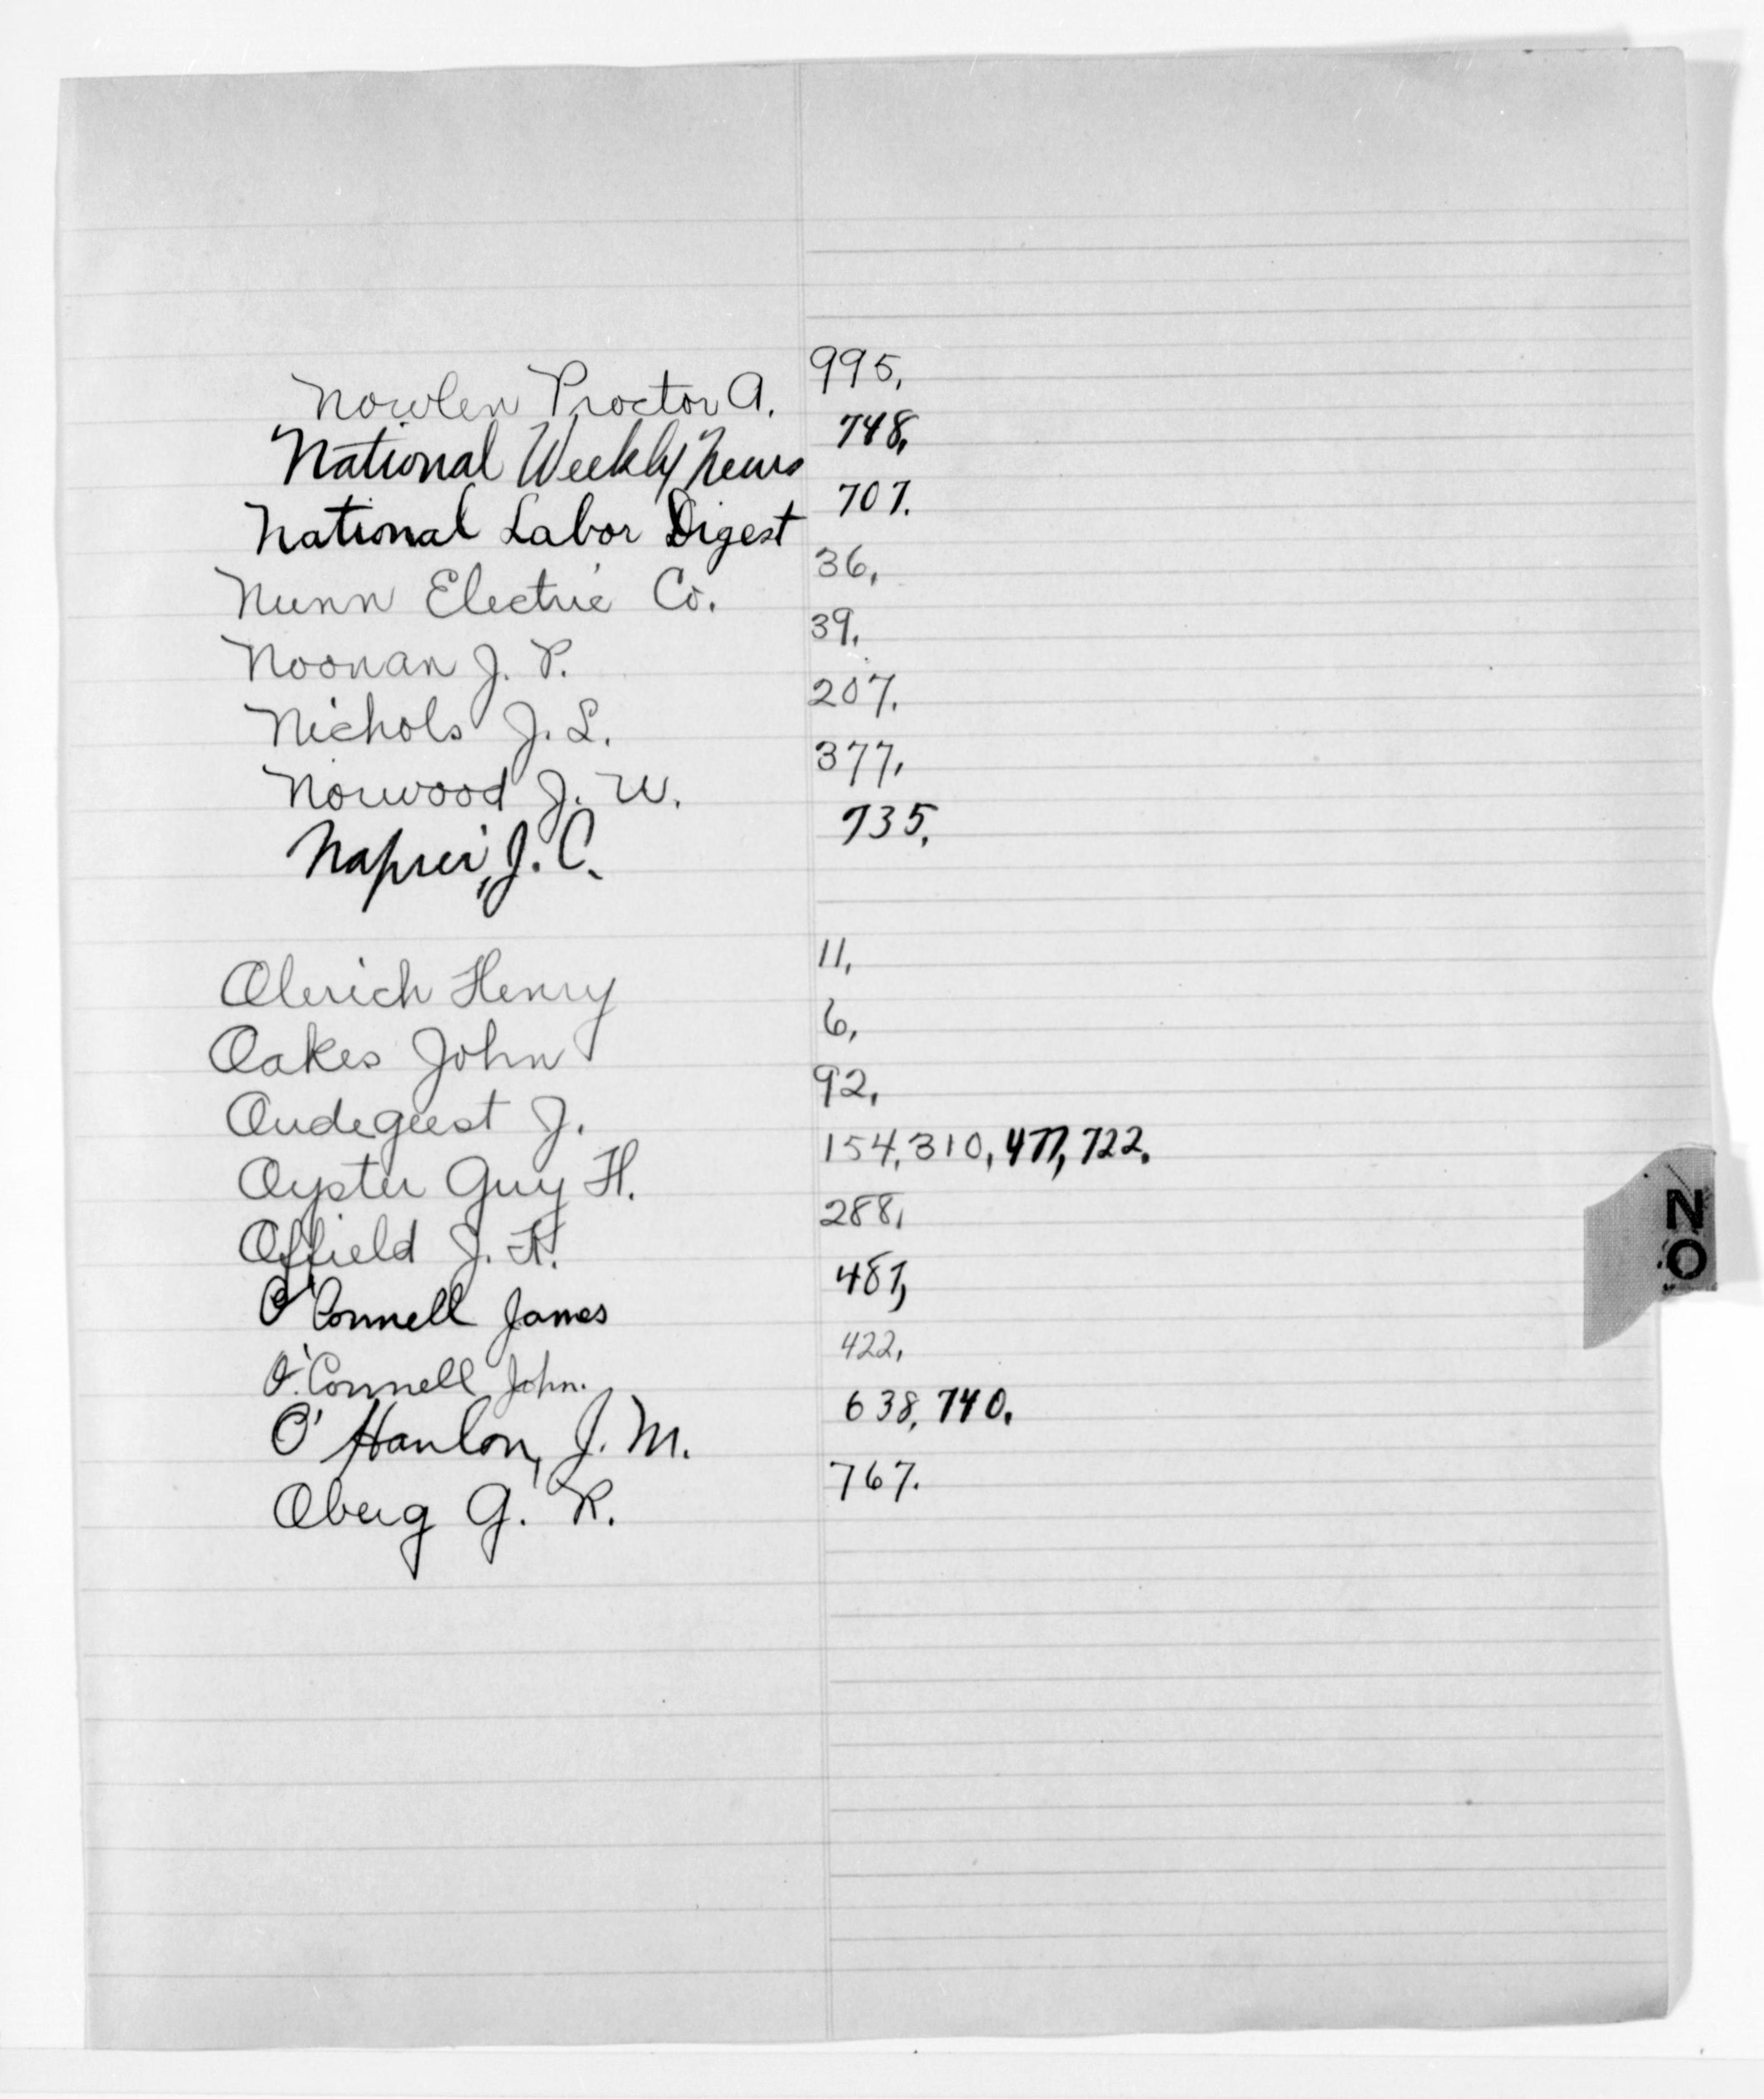 Nowlen Proctor A. 995,
National Weekly News 748,
National Labor Digest 707.
Nunn Electric Co. 36,
Noonan J. P. 39,
Nichols J. L. 207.
Norwood J. W. 377,
Napier, J. C. 735,
Olerich Henry 11,
Oakes John 6,
Oudegeest J. 92,
Oyster Guy H. 154, 310, 477, 722.
Offield J. K. 288,
O'Connell James 487,
O'Connell John. 422,
O'Hanlon, J. M. 638, 740.
Oberg G. R. 767.
N
O